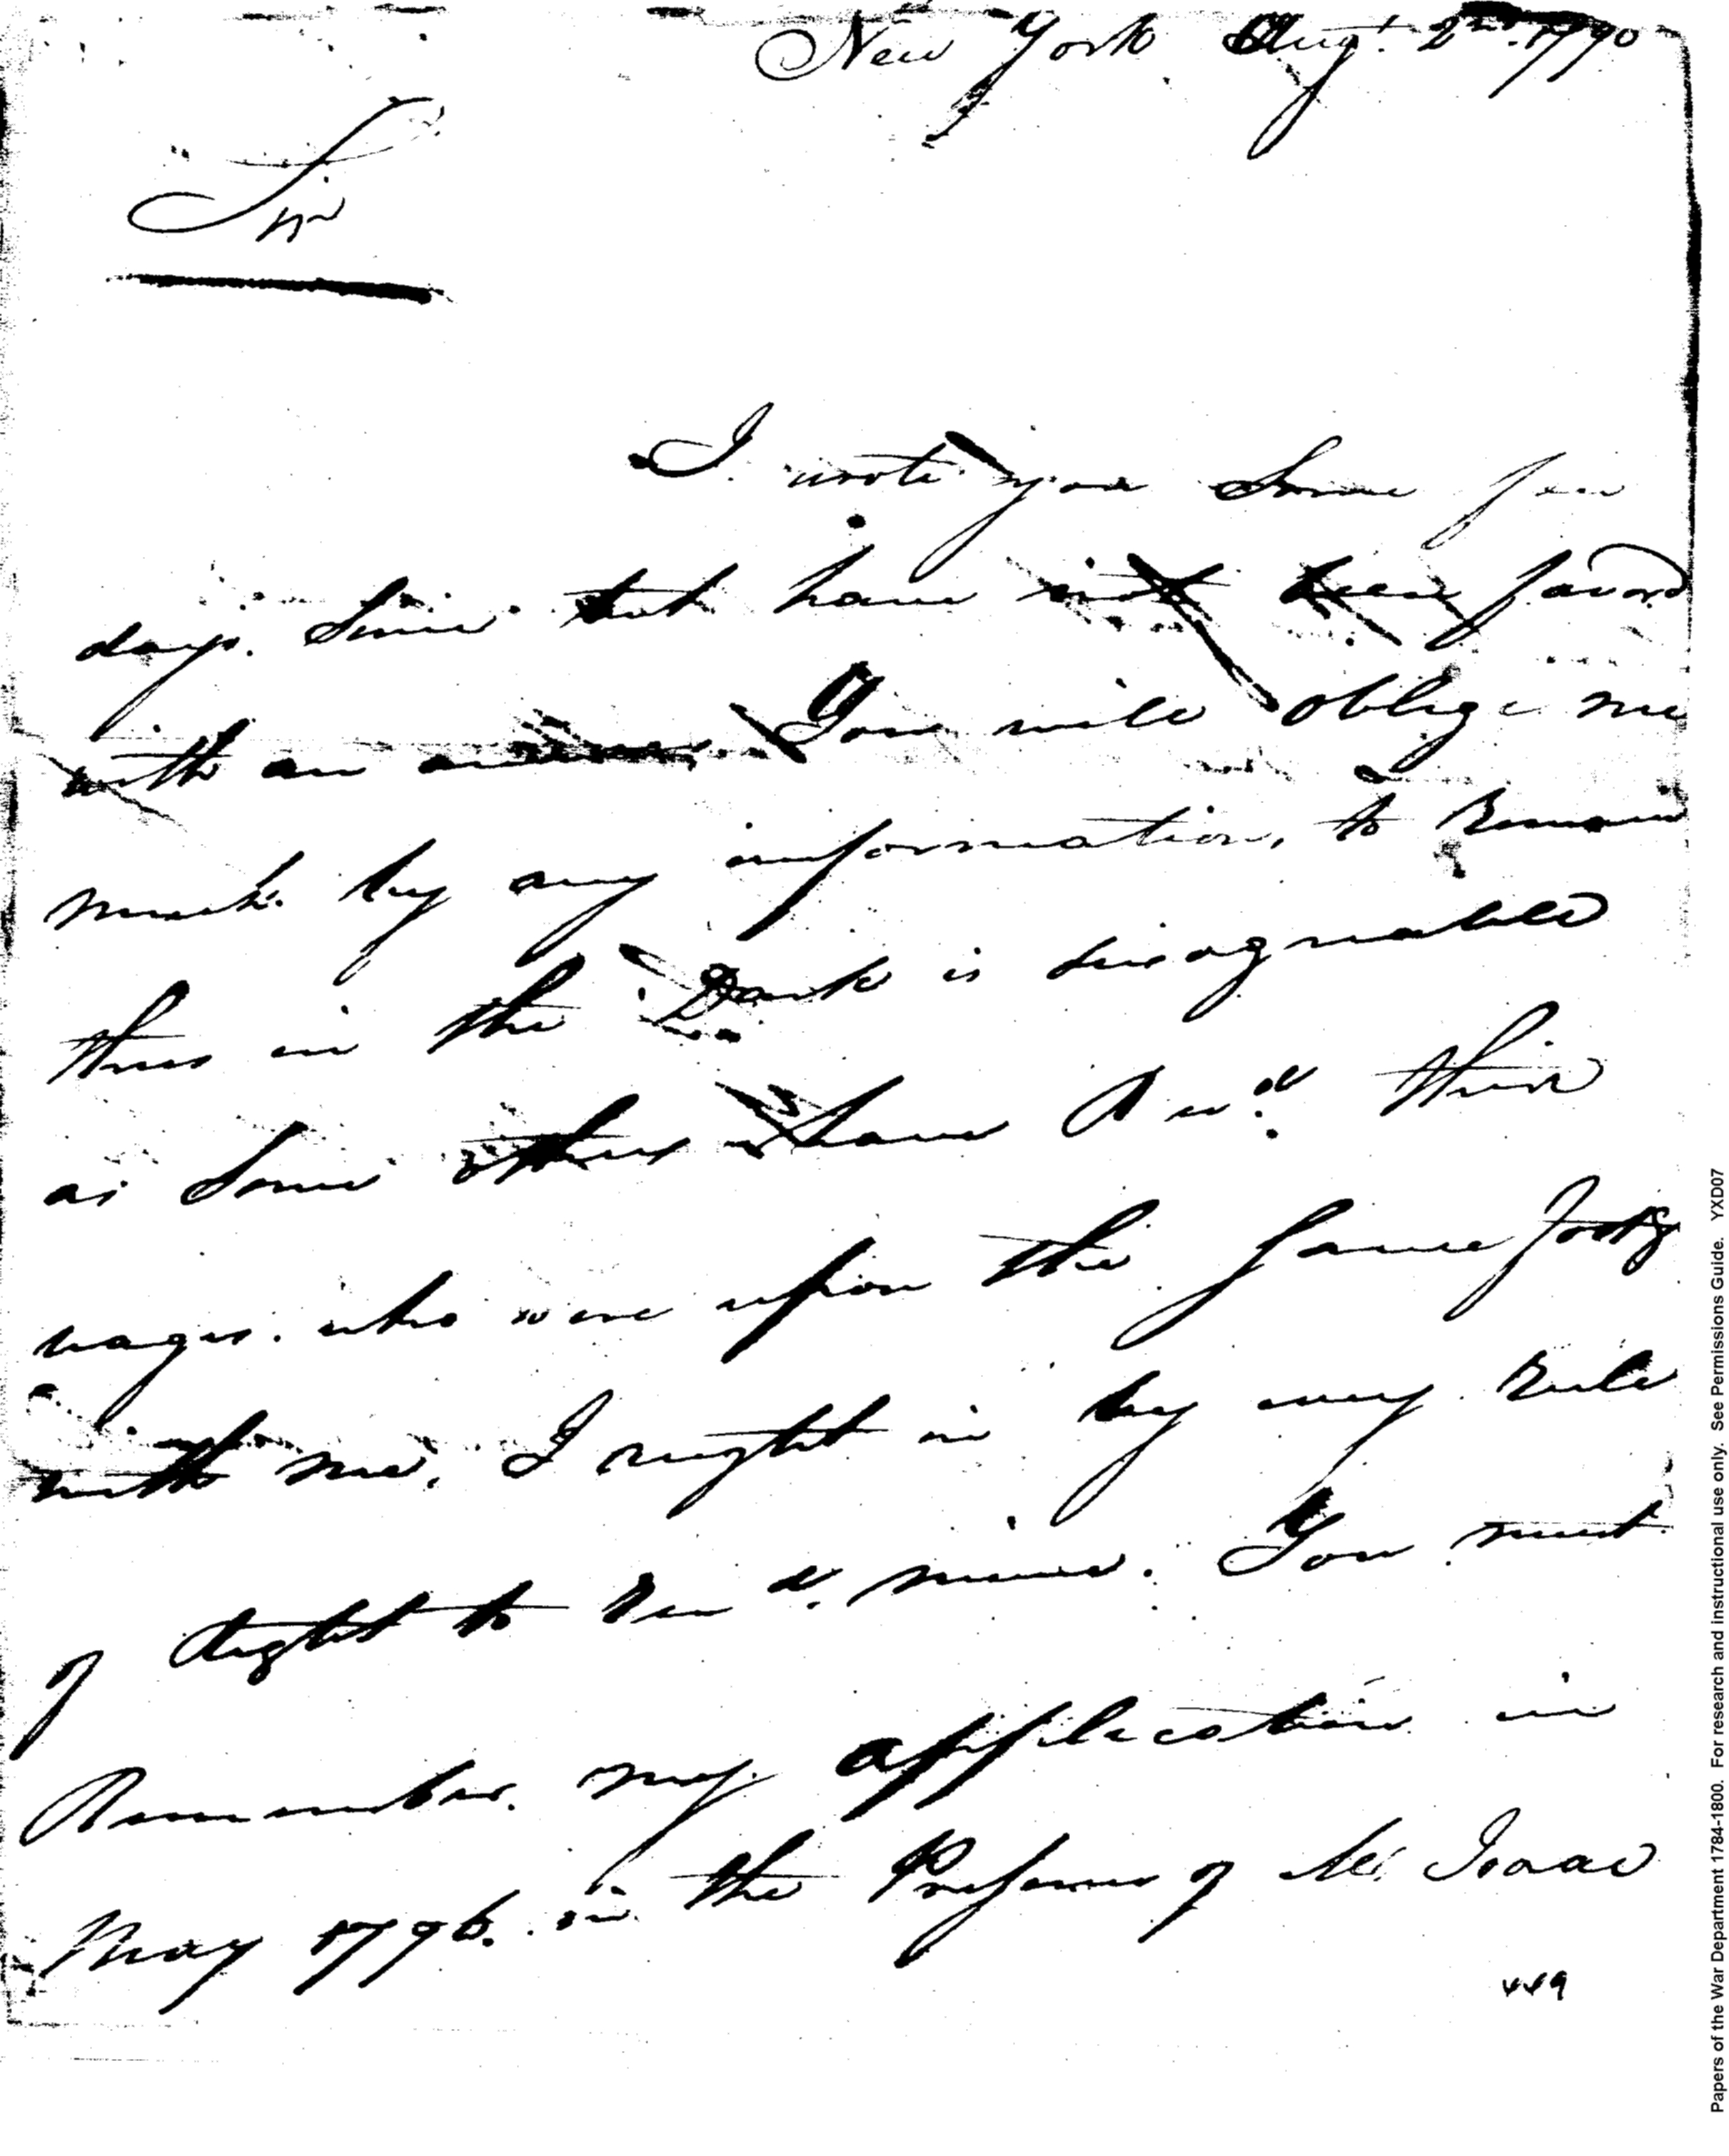 New York Augt. 2nd. 1790
Sir
I wrote you Some few
days. Since but have not been favord
with an answer. You will oblige me
much. by any information, to Remain
thus in the Dark is disagreable
as Some others have Recd. their
wages. who were upon the Same footg
with me, I ought in by any Rule
of Right to Recd. mine. You must
Remember. my application in
May 1796. in the Presence of Mr. Isaac
449
Papers of the War Department 1784-1800. For research and instructional use only. See Permissions Guide. YXD07